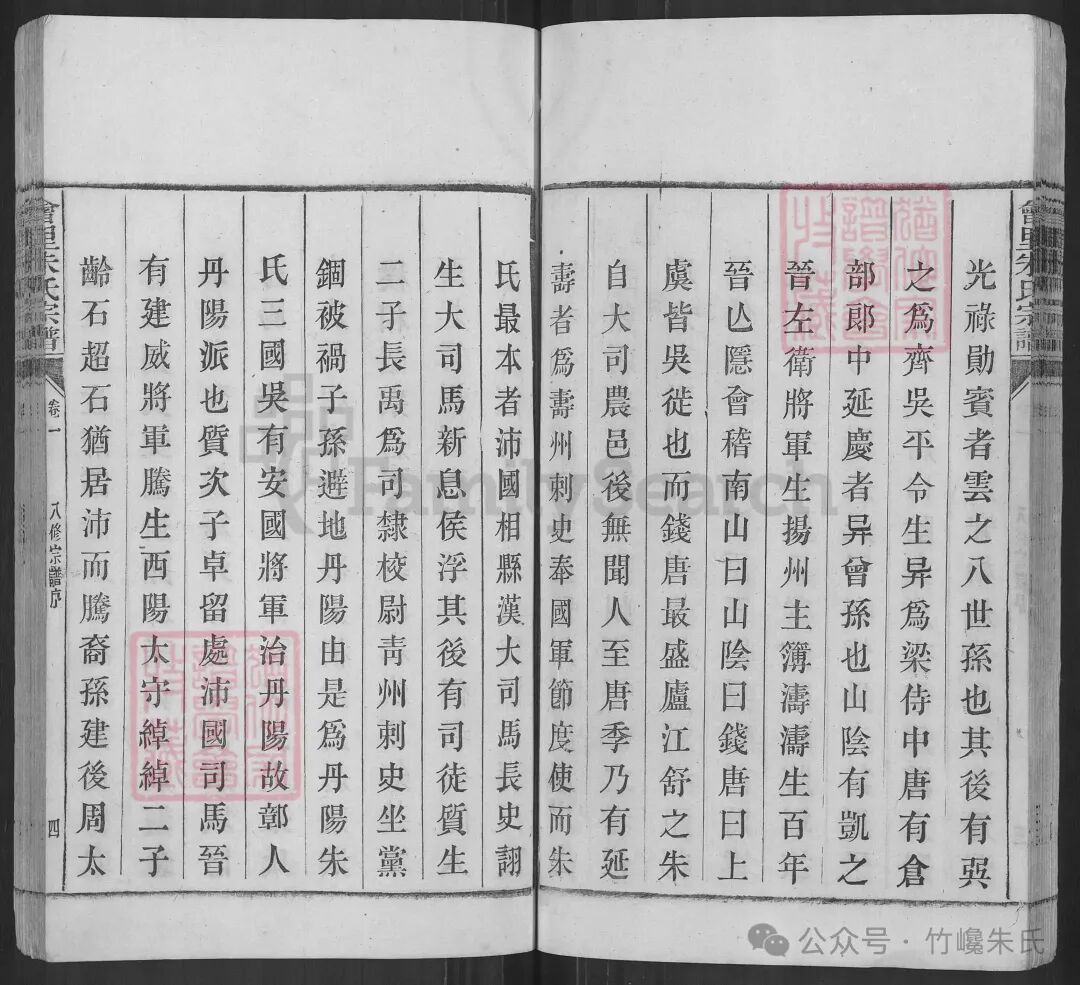 會里朱氏宗譜
光祿勛賓者雲之八世孫也其後有㢲
之爲齊吳平令生异爲梁侍中唐有倉
部郎中延慶者异曾孫也山陰有凱之
晉左衛將軍生揚州主簿濤濤生百年
晉亾隱會稽南山曰山陰曰錢唐曰上
虞皆吳徙也而錢唐最盛廬江舒之朱
自大司農邑後無聞人至唐季乃有延
壽者爲壽州刺史奉國軍節度使而朱
氏最本者沛國相縣漢大司馬長史詡
生大司馬新息侯浮其後有司徒質生
二子長禹爲司隸校尉靑州刺史坐黨
錮被禍子孫避地丹陽由是爲丹陽朱
氏三國吳有安國將軍治丹陽故鄣人
丹陽派也質次子卓留處沛國司馬晉
有建威將軍騰生西陽太守綽綽二子
齡石超石猶居沛而騰裔孫建後周太
會里朱氏宗譜
卷一
八修宗譜序
四
FamilySearch
公众号·竹巉朱氏